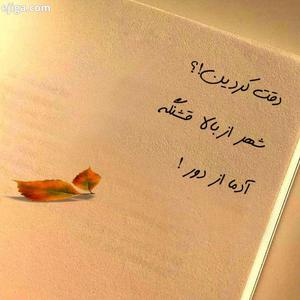 ejiga.com
دقت کردین!؟
شهر از بالا قشنگه
آدما از دور !